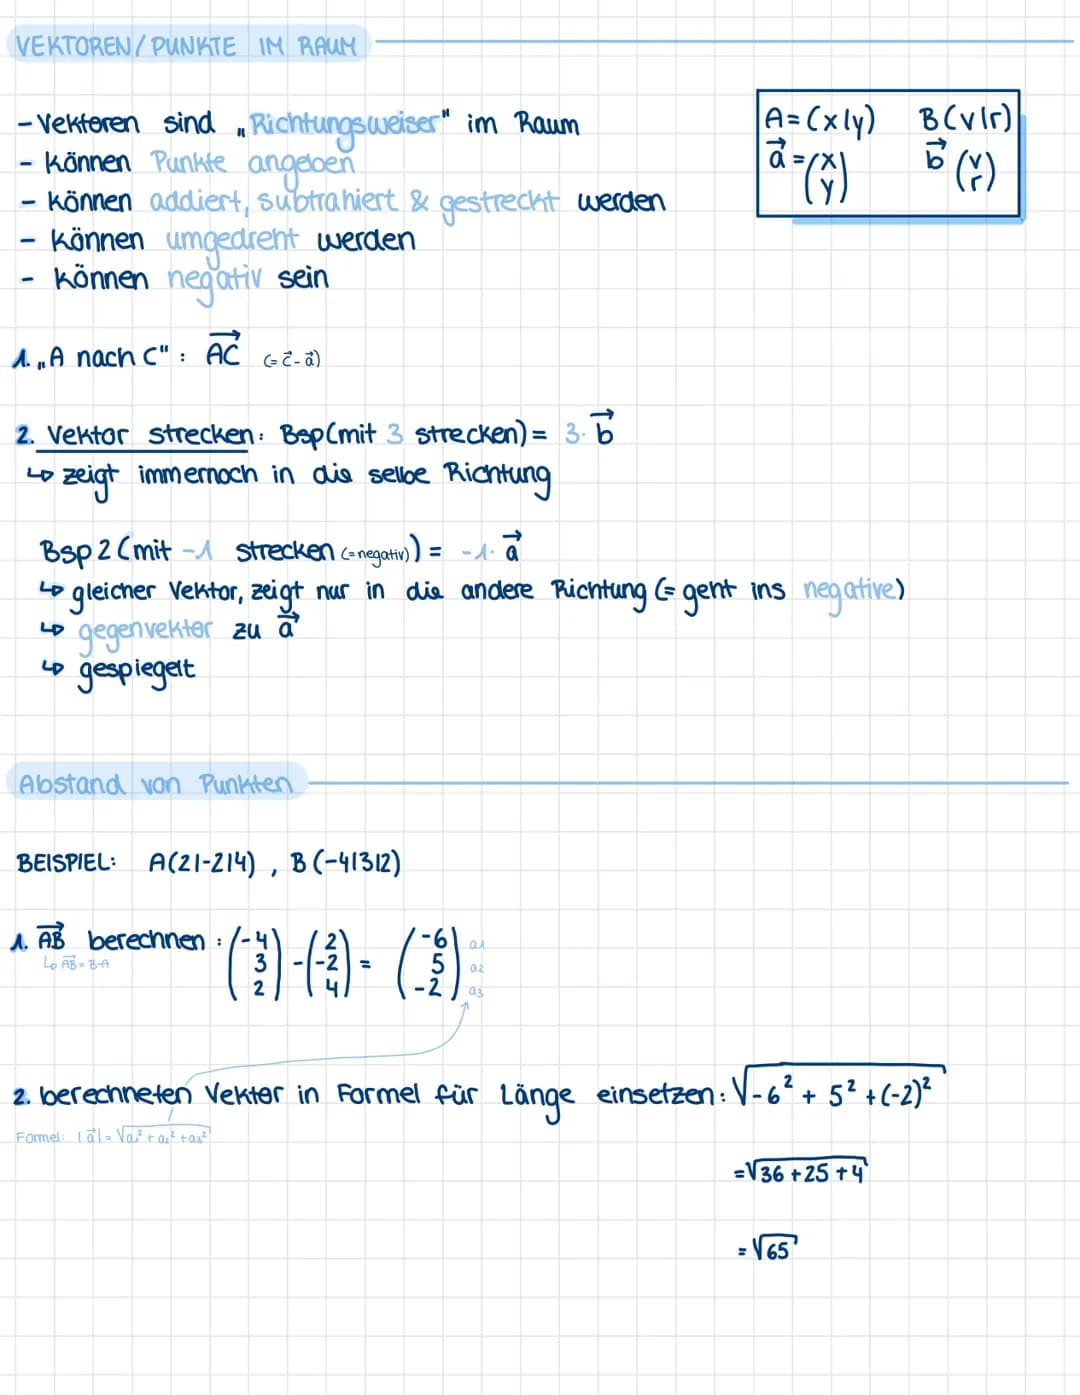 VEKTOREN/PUNKTE IM RAUM
- Vektoren sind „Richtungsweiser" im Raum
- können Punkte angeben
- können addiert, subtrahiert & gestreckt werden
- können umgedreht werden
- können negativ sein
A=(x|y) B(v|r)
a⃗ = (x y) b⃗ (v r)
1. „A nach C" : AC⃗ (= c⃗ - a⃗)
2. Vektor strecken: Bsp(mit 3 strecken) = 3 · b⃗
↳ zeigt immernoch in die selbe Richtung
Bsp 2 (mit -1 strecken (=negativ)) = -1 · a⃗
↳ gleicher Vektor, zeigt nur in die andere Richtung (= geht ins negative)
↳ gegenvektor zu a⃗
↳ gespiegelt
Abstand von Punkten
BEISPIEL: A(2|-2|4) , B(-4|3|2)
1. AB⃗ berechnen : (-4 3 2) - (2 -2 4) = (-6 5 -2) a1 a2 a3
↳ AB⃗ = B-A
2. berechneten Vektor in Formel für Länge einsetzen: √-6² + 5² + (-2)²
Formel: |a⃗| = √a₁² + a₂² + a₃²
= √36 + 25 + 4
= √65